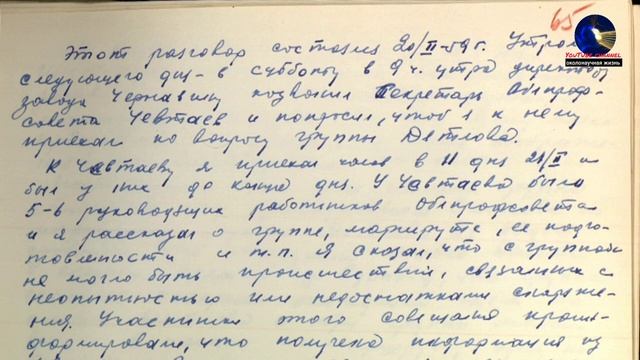 65
YouTube CHANNEL
околонаучная жизнь
Этот разговор состоялся 20/II-59 г. Утром
следующего дня - в субботу в 9 ч. утра директору
завода Чернавину позвонил секретарь Облпроф-
совета Чевтаев и попросил, чтоб я к нему
приехал по вопросу группы Дятлова.
К Чевтаеву я приехал часов в 11 дня 21/II и
был у них до конца дня. У Чевтаева было
5-6 руководящих работников Облпрофсовета
и я рассказал о группе, маршруте, её подго-
товленности и т.п. Я сказал, что с группой
не могло быть происшествий, связанных с
неопытностью или недостатками снаряже-
ния. Участники этого совещания проин-
формировали, что получена информация из